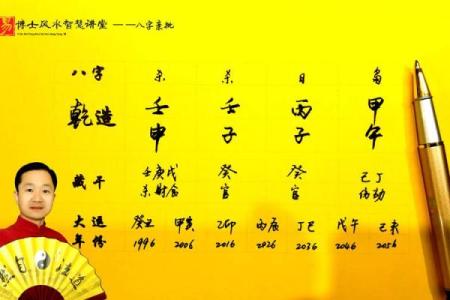 易 博士风水智慧讲堂 ——八字亲批
八字 杀 杀 日 枭
乾造 壬 壬 丙 甲
申 子 子 午
藏干 壬庚戊 癸 癸 己丁
杀财食 官 官 伤劫
大运 癸丑 甲寅 乙卯 丙辰 丁巳 戊午 己未
年份 1996 2006 2016 2026 2036 2046 2056
自法道